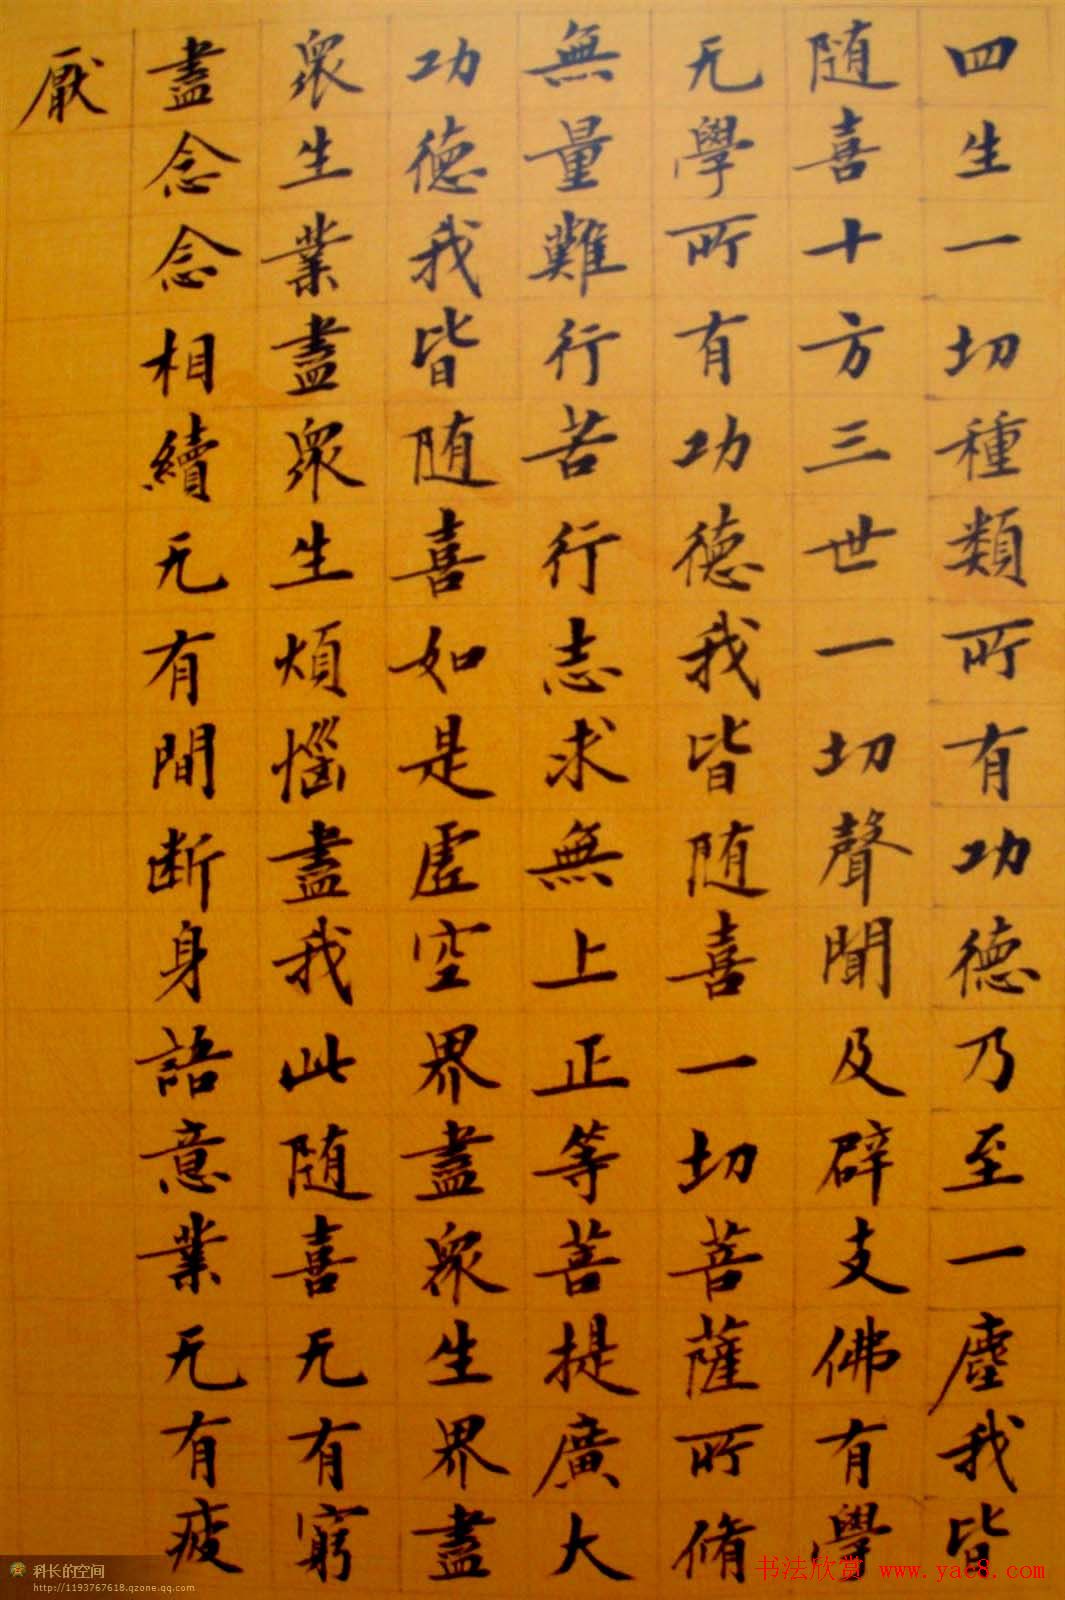 四生一切種類所有功德乃至一塵我皆
随喜十方三世一切聲聞及辟支佛有學
无學所有功德我皆随喜一切菩薩所脩
無量難行苦行志求無上正等菩提廣大
功德我皆随喜如是虛空界盡衆生界盡
衆生業盡衆生煩惱盡我此随喜无有窮
盡念念相續无有間断身語意業无有疲
厭
科长的空间
http://1193767618.qzone.qq.com
书法欣赏 www.yac8.com